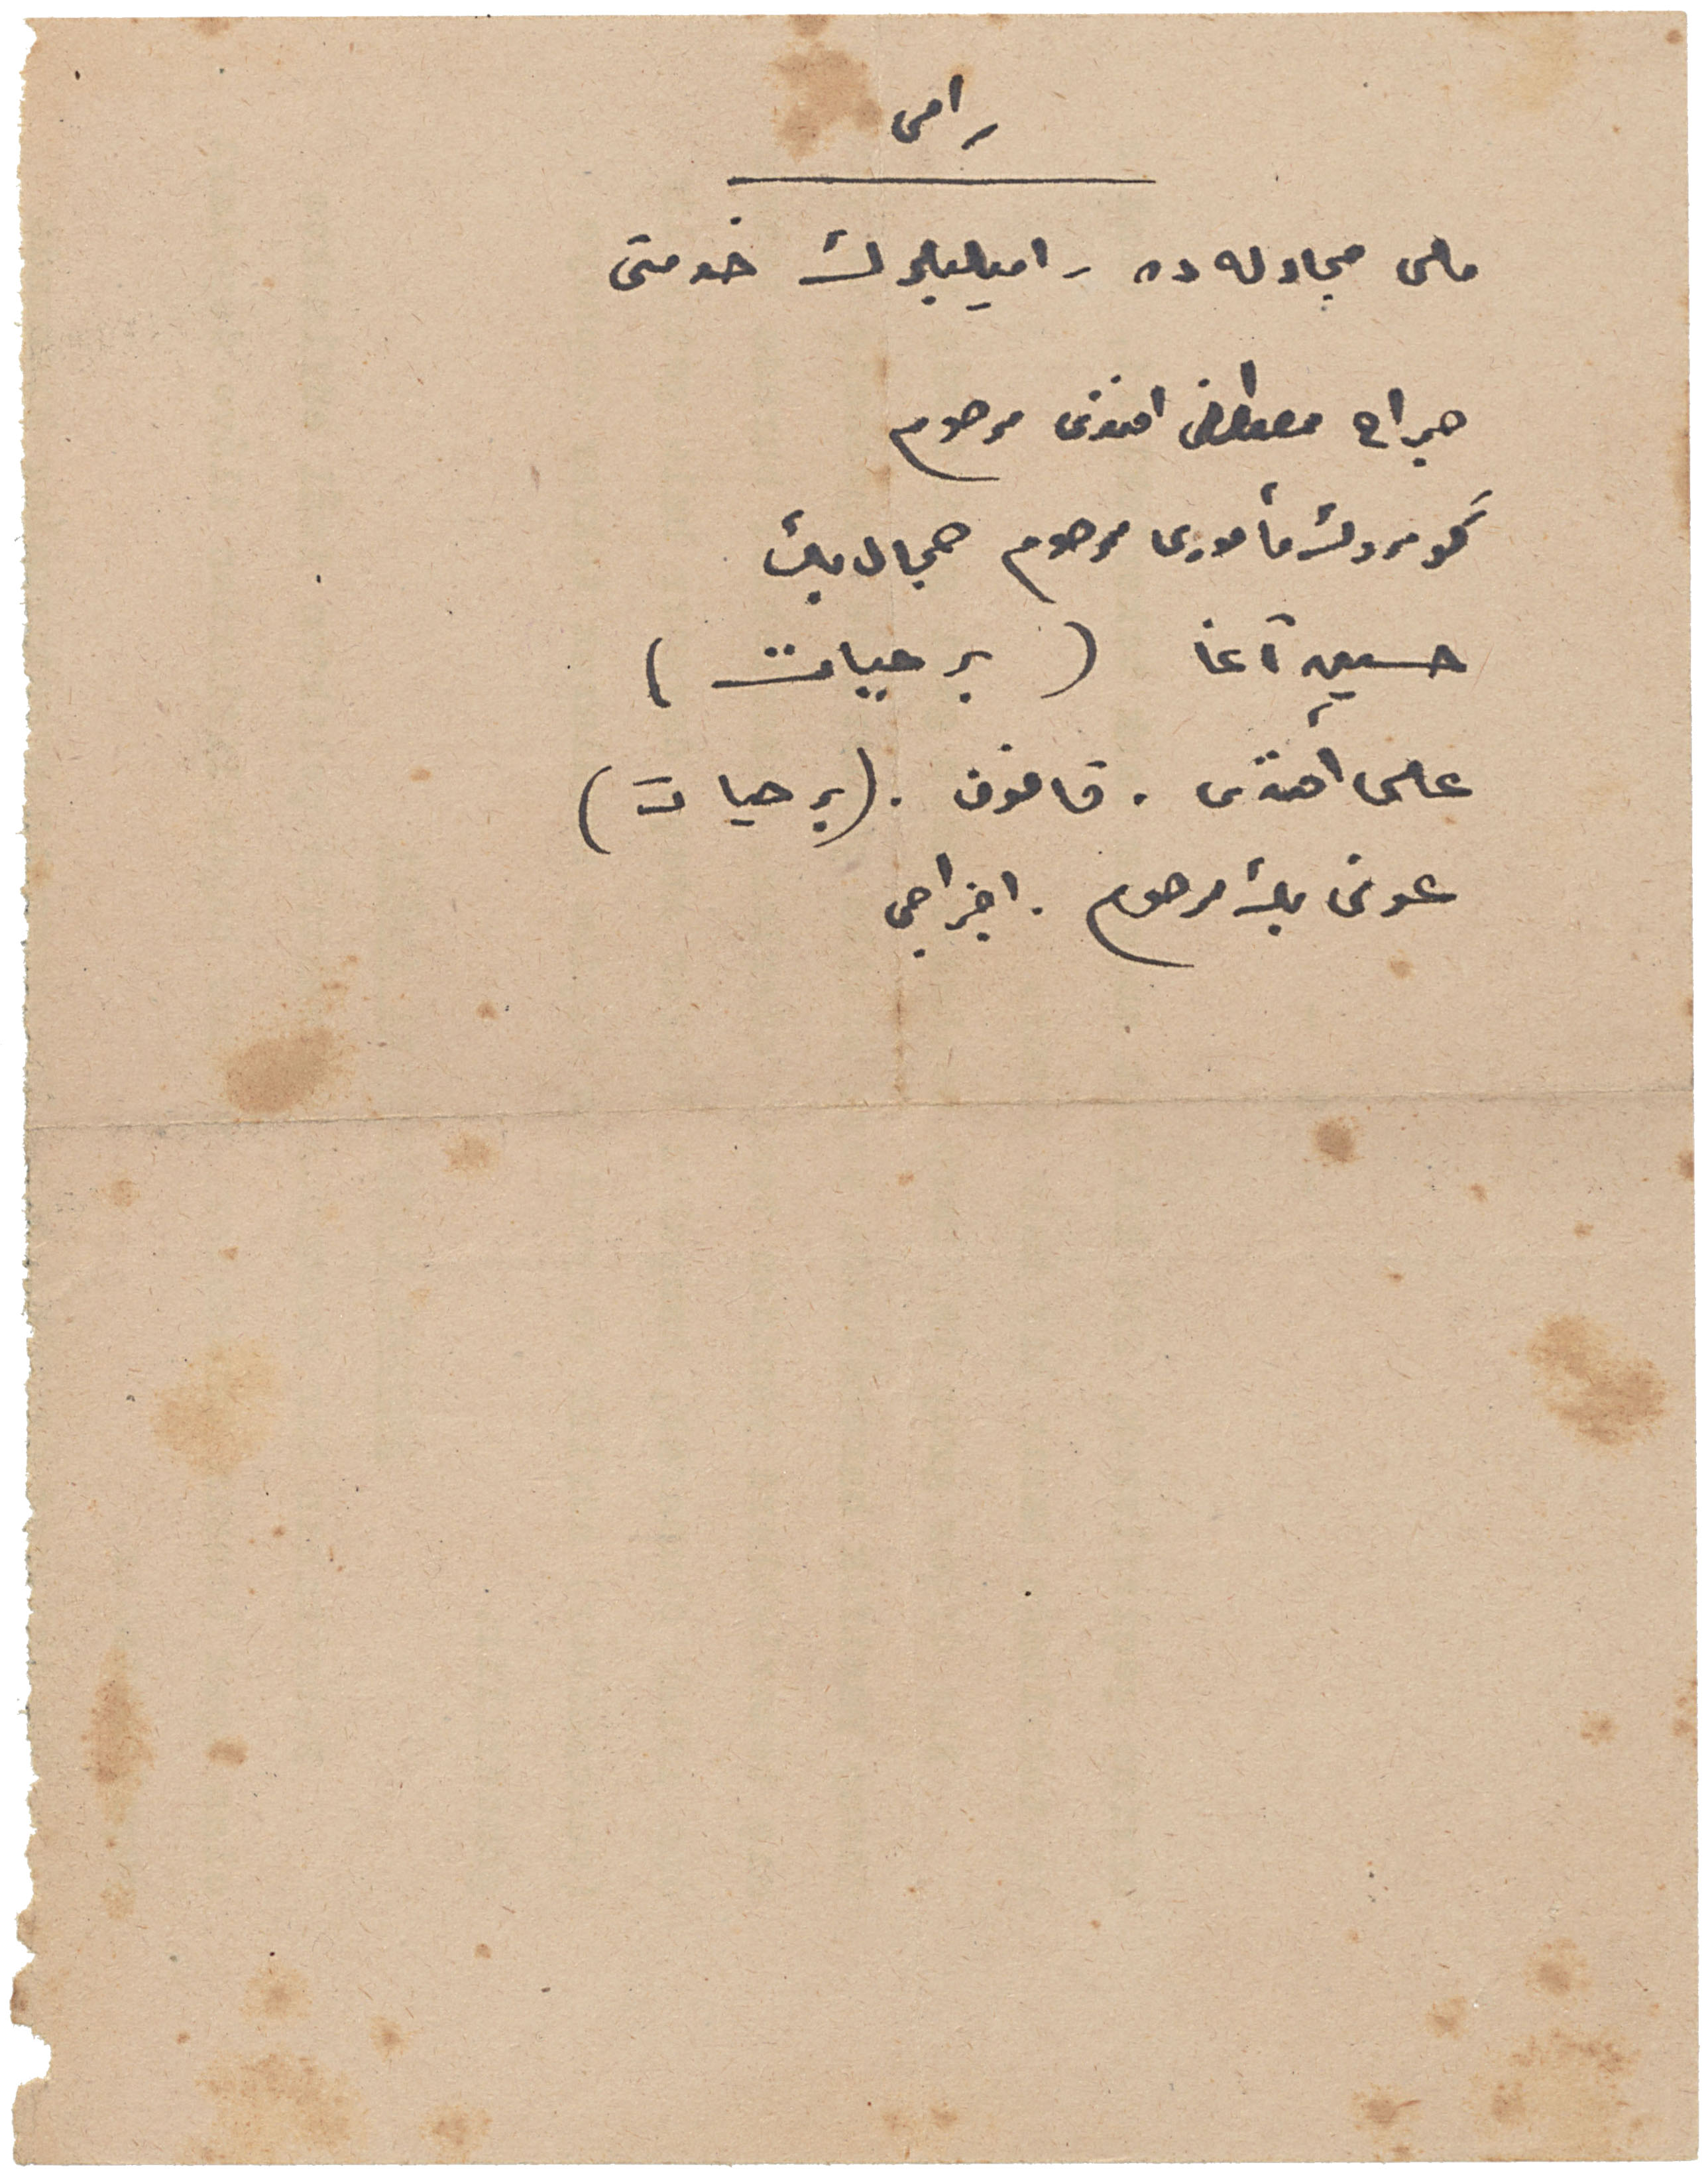 رامی
ملی مجادله ده رامیلیلرك خدمتی
مصطفی افندی مرحوم
كومروك مأموری مرحوم جمال بك
حسین آغا ( بر حیات )
علی افندی . قانون . (بر حیات)
عونی بك مرحوم . اجزاجی